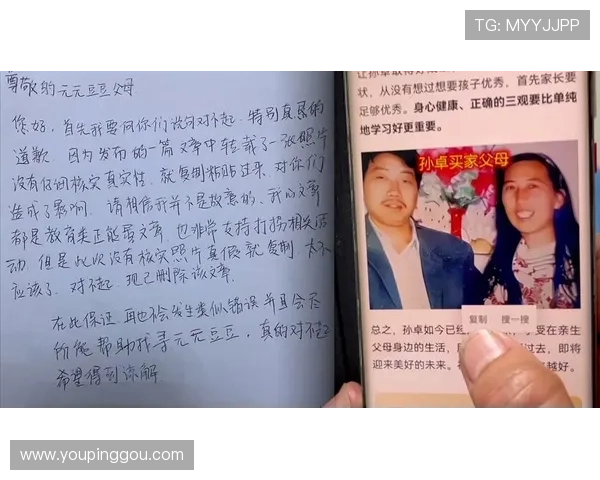 TG: MYYJJPP
尊敬的元元豆豆父母
您好，首先我要向你们说句对不起，特别真恳的
道歉，因为发布的一篇文章中转载了一张照片
没有仔细核实真实性，就复制粘贴过来，对你们
造成了影响，请相信我并不是故意的，我的文章
都是教育类正能量文章，也非常支持打拐相关活
动，但是此次没有核实照片真假就复制，太不
应该了，对不起，现已删除该文章。
在此保证，再也不会发生类似错误并且会尽
所能帮助找寻元元豆豆，真的对不起
希望得到谅解
让孙卓取得好成
状，从没有想过想要孩子优秀，首先家长要
足够优秀。身心健康、正确的三观要比单纯
地学习好更重要。
孙卓买家父母
复制 搜一搜
总之，孙卓如今已经 受在亲生
父母身边的生活， 过去，即将
迎来美好的未来。 越好。
www.youpinggou.com